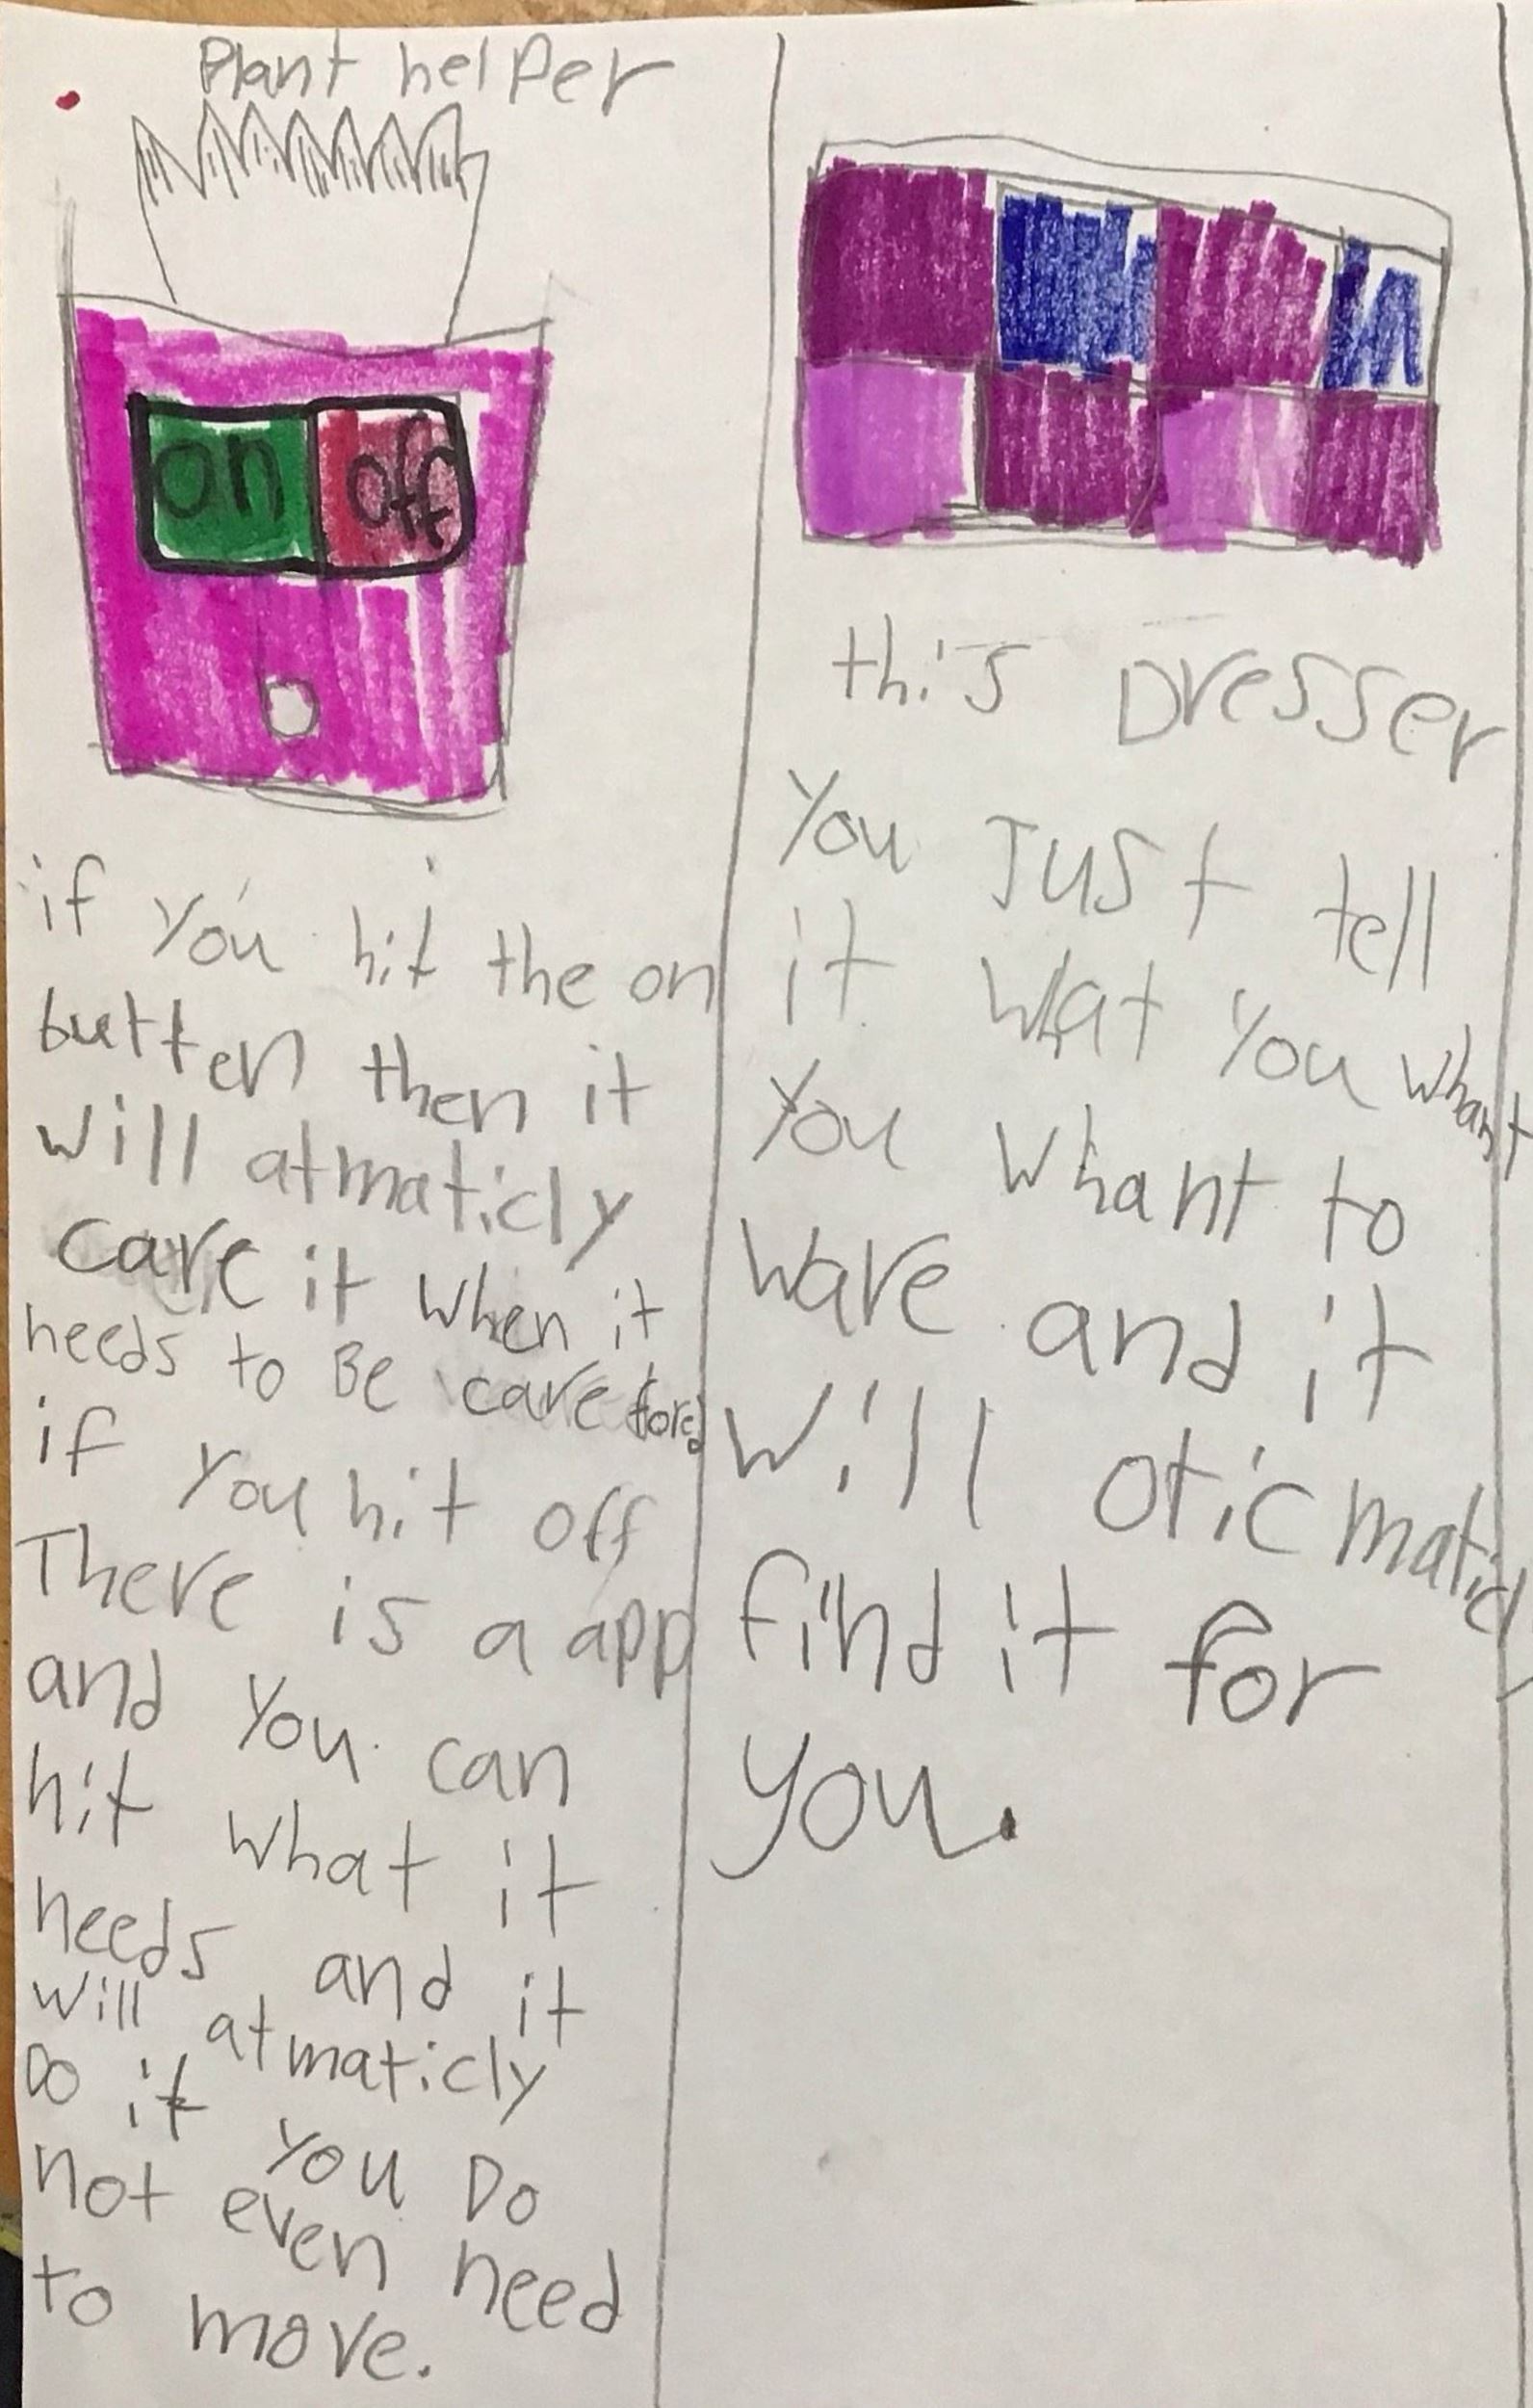 Plant helper
on off
if you hit the on
butten then it
will atmaticly
care it when it
needs to Be care fored
if you hit off
There is a app
and you can
hit what it
needs and it
will atmaticly
Do it you Do
not even need
to move.
this Dresser
You Just tell
it What you whant
You whant to
ware and it
will oticmaticl
find it for
you.